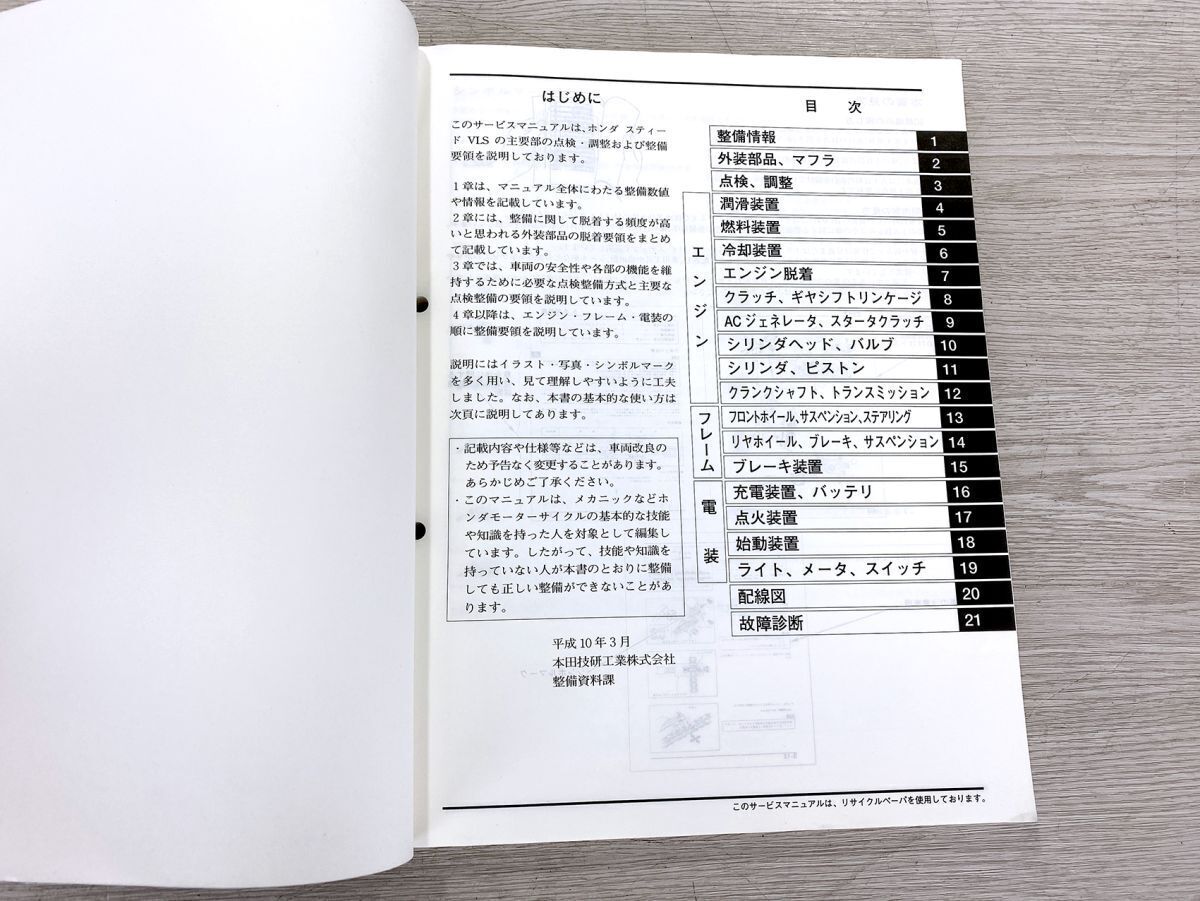 はじめに
このサービスマニュアルは、ホンダ スティー
ド VLS の主要部の点検・調整および整備
要領を説明しております。
1章は、マニュアル全体にわたる整備数値
や情報を記載しています。
2章には、整備に関して脱着する頻度が高
いと思われる外装部品の脱着要領をまとめ
て記載しています。
3章では、車両の安全性や各部の機能を維
持するために必要な点検整備方式と主要な
点検整備の要領を説明しています。
4章以降は、エンジン・フレーム・電装の
順に整備要領を説明しています。
説明にはイラスト・写真・シンボルマーク
を多く用い、見て理解しやすいように工夫
しました。なお、本書の基本的な使い方は
次頁に説明してあります。
・記載内容や仕様等などは、車両改良の
ため予告なく変更することがあります。
あらかじめご了承ください。
・このマニュアルは、メカニックなどホ
ンダモーターサイクルの基本的な技能
や知識を持った人を対象として編集し
ています。したがって、技能や知識を
持っていない人が本書のとおりに整備
しても正しい整備ができないことがあ
ります。
平成10年3月
本田技研工業株式会社
整備資料課
目 次
整備情報 1
外装部品、マフラ 2
点検、調整 3
エンジン
潤滑装置 4
燃料装置 5
冷却装置 6
エンジン脱着 7
クラッチ、ギヤシフトリンケージ 8
ACジェネレータ、スタータクラッチ 9
シリンダヘッド、バルブ 10
シリンダ、ピストン 11
クランクシャフト、トランスミッション 12
フレーム
フロントホイール、サスペンション、ステアリング 13
リヤホイール、ブレーキ、サスペンション 14
ブレーキ装置 15
電装
充電装置、バッテリ 16
点火装置 17
始動装置 18
ライト、メータ、スイッチ 19
配線図 20
故障診断 21
このサービスマニュアルは、リサイクルペーパを使用しております。